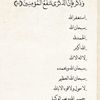 وَذَكِّرْ فَإِنَّ الذِّكْرَىٰ تَنفَعُ الْمُؤْمِنِينَ
استغفر الله
سبحان الله
الحمد لله
لا إله إلا الله
الله أكبر
سبحان الله وبحمده
سبحان الله العظيم
لا حول ولا قوة إلا بالله